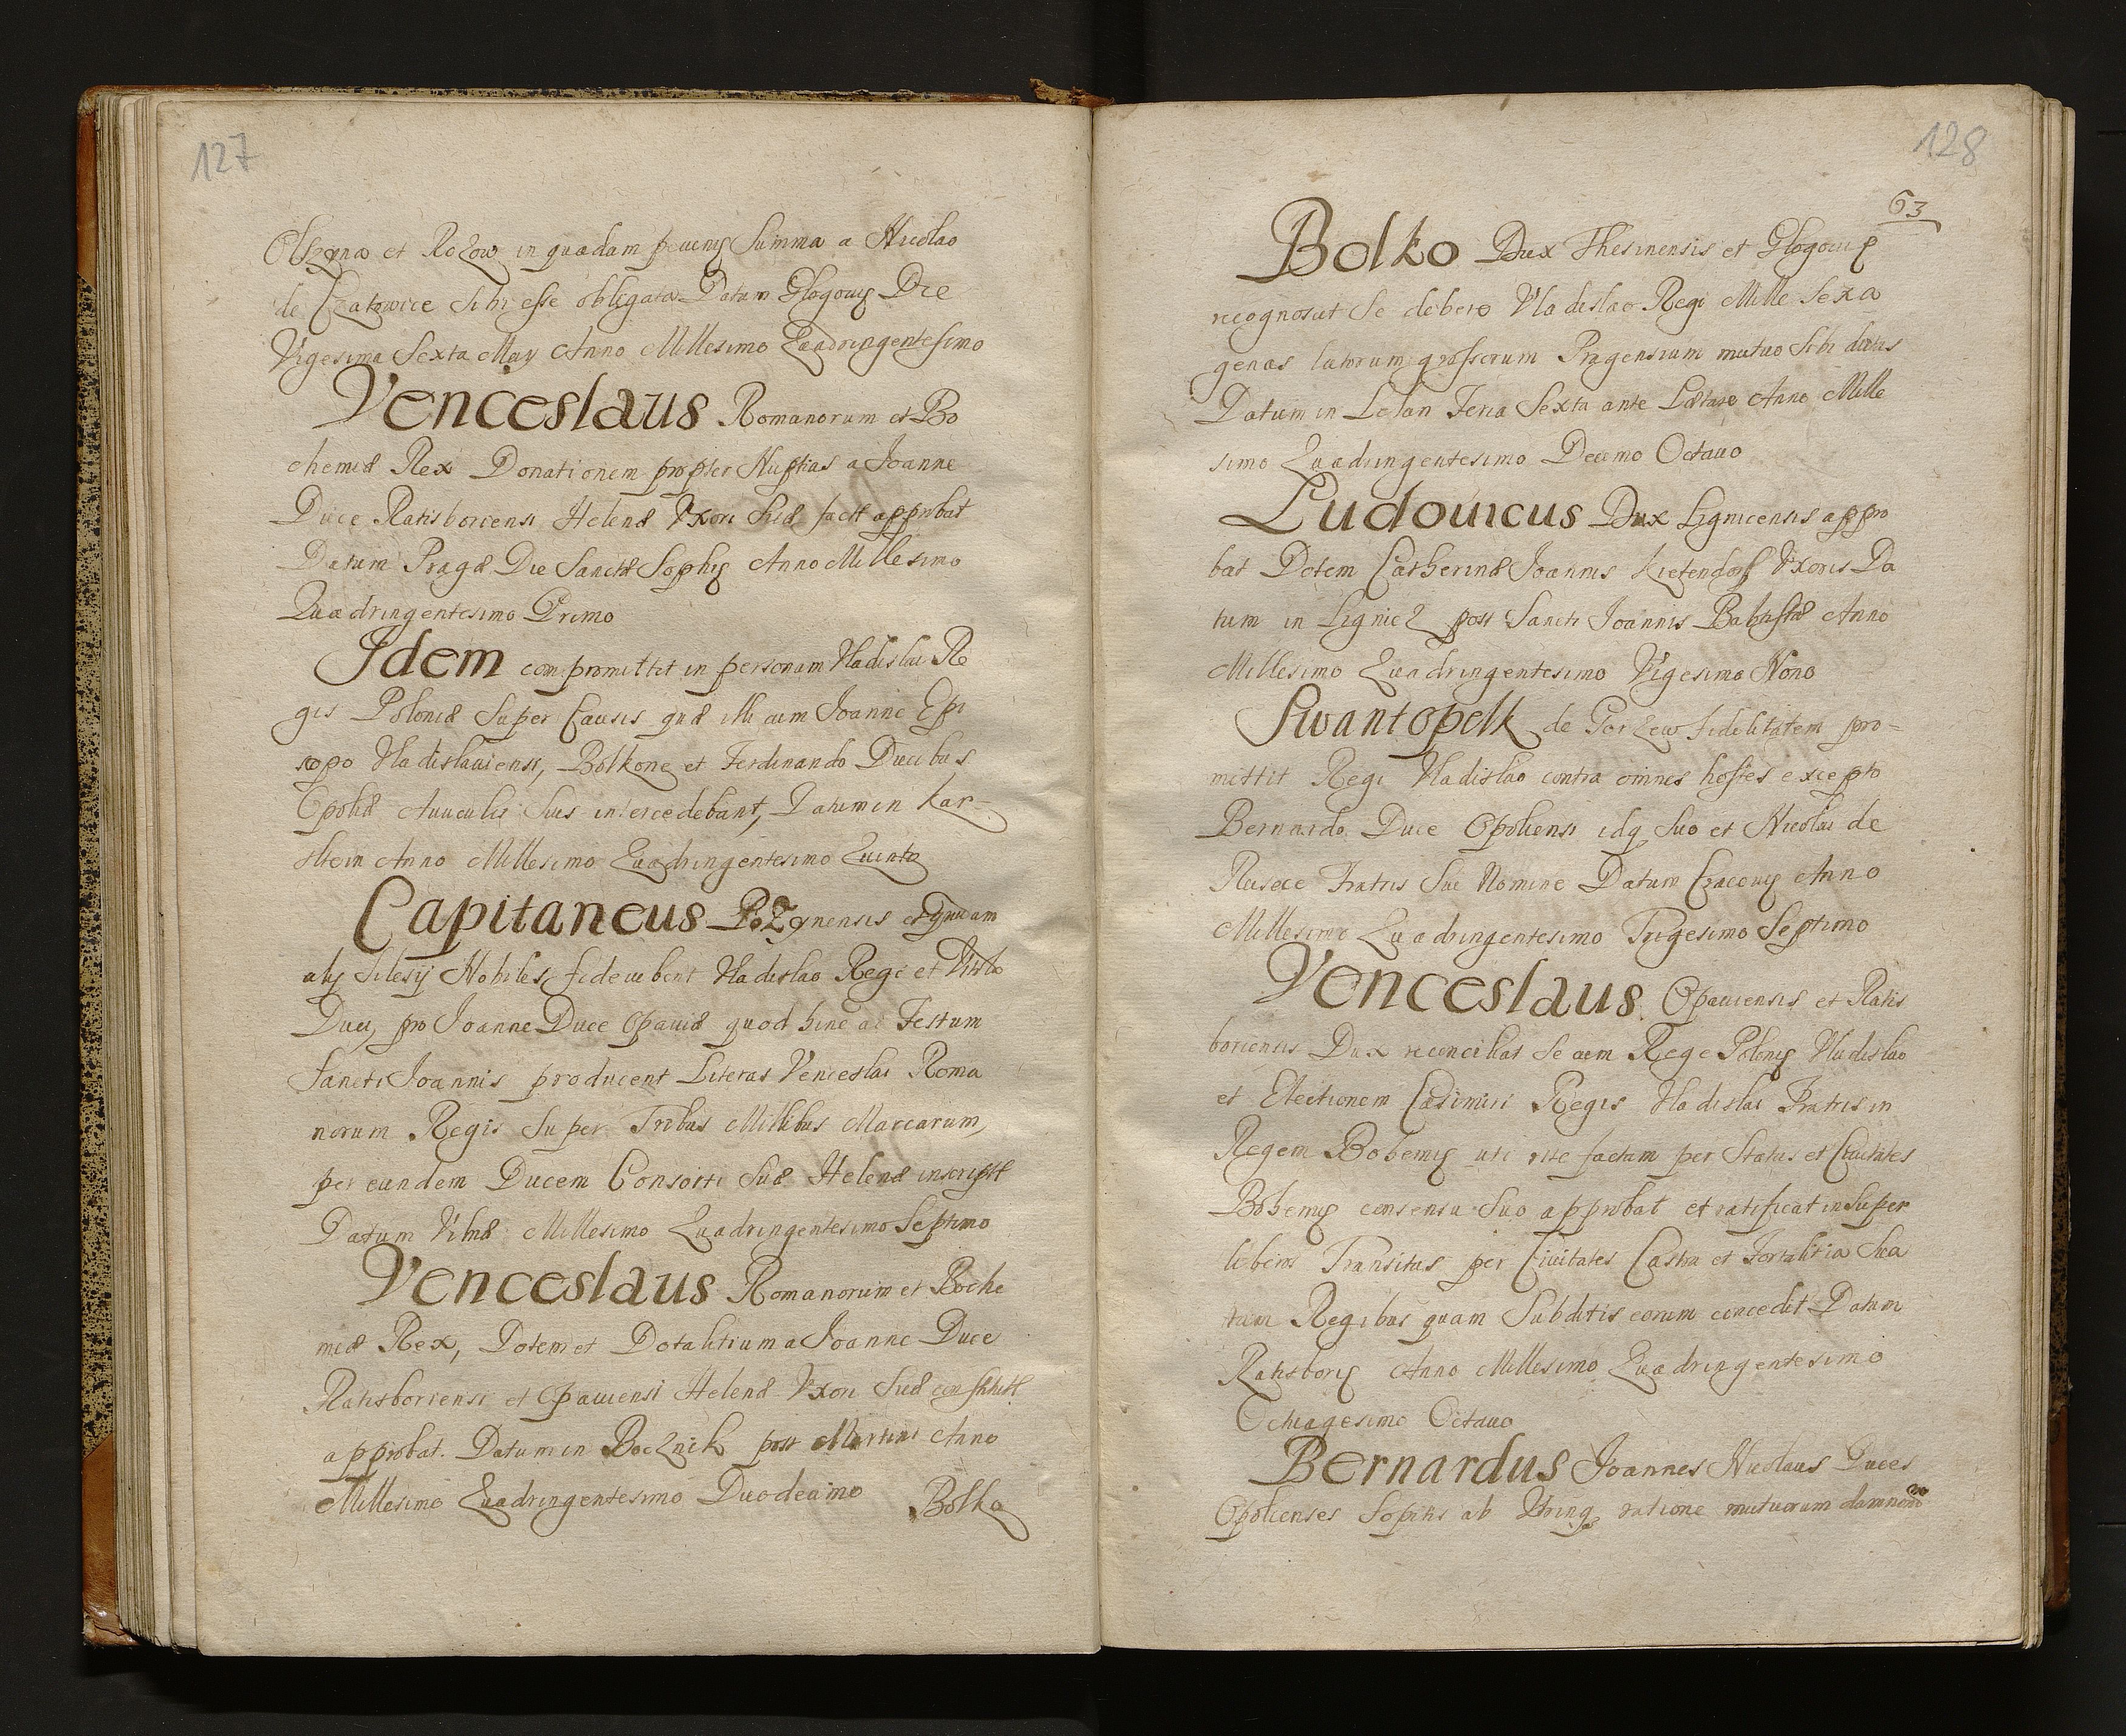 127
Olszyna et Rozow in quadam pecuniæ Summa a Nicolao
de Czatowice sibi esse obligata Datum Glogouiæ Die
Vigesima Sexta May Anno Millesimo Quadringentesimo
Venceslaus Romanorum et Bo
chemiæ Rex Donationem propter Nuptias a Joanne
Duce Ratiboriensi Helenæ Vxori Suæ fact approbat
Datum Pragæ Die Sanctæ Sophiæ Anno Millesimo
Quadringentesimo Primo
Idem compromittit in personam Vladislai Re
gis Poloniæ Super Causis quæ illi cum Joanne Epi
scopo Vladislauiensi, Bolkone et Ferdinando Ducibus
Opoliæ Auunculis Suis intercedebant, Datum in Kar-
sltein Anno Millesimo Quadringentesimo Quinto
Capitaneus Pozynensis et quidam
alij Silesij Nobiles fideiubent Vladislao Regi et
Duci, pro Joanne Duce Opauiæ quod hinc ad Festum
Sancti Joannis producent Literas Venceslai Roma
norum Regis Super Tribus Millibus Marcarum,
per eundem Ducem Consorti Suæ Helenæ inscript
Datum Vilnæ Millesimo Quadringentesimo Septimo
Venceslaus Romanorum et Boche
miæ Rex, Dotem et Dotalitium a Joanne Duce
Ratiboriensi et Opauiensi Helenæ Vxori Suæ constitut
approbat. Datum in Bocznik post Martini Anno
Millesimo Quadringentesimo Duodecimo
Bolko
128
63
Bolko Dux Thesinensis et Glogouiæ
recognoscit Se debere Vladislao Regi Mille Sexa
genas latorum grossorum Pragensium mutuo Sibi datas
Datum in Lelau Feria Sexta ante Lætare Anno Mille
simo Quadringentesimo Decimo Octauo
Ludouicus Dux Lignicensis appro
bat Dotem Catherinæ Joannis Kietendorff Vxoris Da
tum in Lignicz post Sancti Joannis Babtistæ Anno
Millesimo Quadringentesimo Vigesimo Nono
Swantopelk de Gorzew Fidelitatem pro-
mittit Regi Vladislao contra omnes hostes excepto
Bernardo Duce Opoliensi idq Suo et Nicolai de
Rusece Fratris Sui Nomine Datum Cracouiæ Anno
Millesimo Quadringentesimo Trigesimo Septimo
Venceslaus Opauiensis et Ratis
boriensis Dux reconciliat Se cum Rege Poloniæ Vladislao
et Electionem Casimiri Regis Vladislai Fratris in
Regem Bohemiæ uti rite factam per Status et Ciuitates
Bohemiæ consensu Suo approbat et ratificat insuper
liberos Transitus per Ciuitates Castra et Fortalitia Sua
tum Regibus quam Subditis eorum concedit Datum
Ratisboriæ Anno Millesimo Quadringentesimo
Octuagesimo Octauo
Bernardus Joannes Nicolaus Duces
Opolienses Sopitis ab Vtrinq ratione mutuorum damnorum